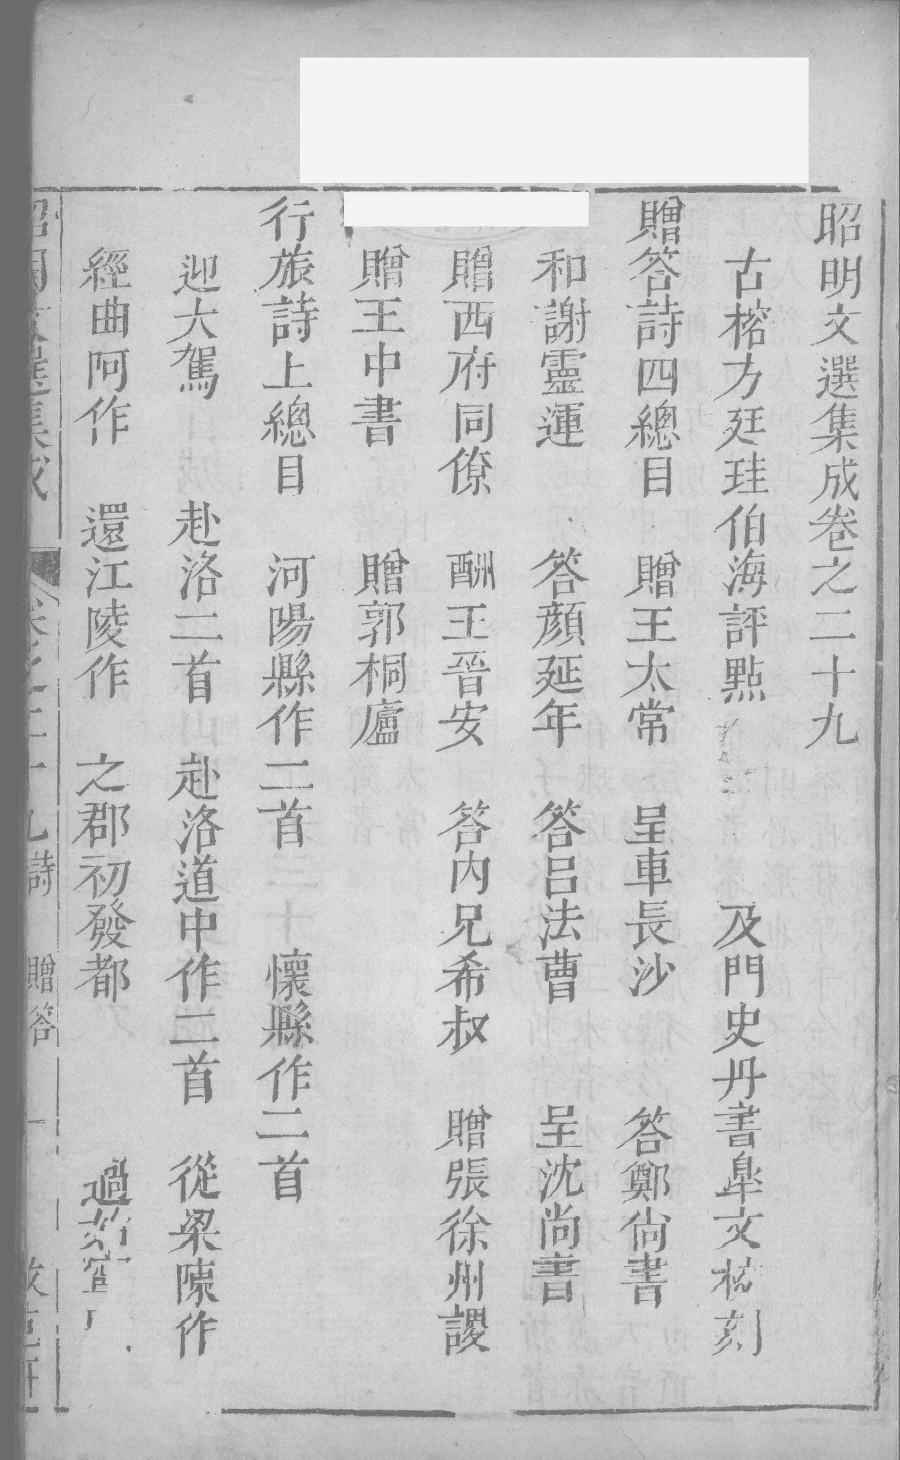 昭明文選集成卷之二十九
古榕方廷珪伯海評點　及門史丹書臯文校刻
贈答詩四總目　贈王太常　呈車長沙　答鄭尙書
和謝靈運　答顔延年　答呂法曹　呈沈尚書
贈西府同僚　酬王晉安　答內兄希叔　贈張徐州謖
贈王中書　贈郭桐廬
行旅詩上總目　河陽縣作二首　懷縣作二首
迎大駕　赴洛二首　赴洛道中作二首　從梁陳作
經曲阿作　還江陵作　之郡初發都　過
昭明文選集成　卷之二十九詩　贈答　一